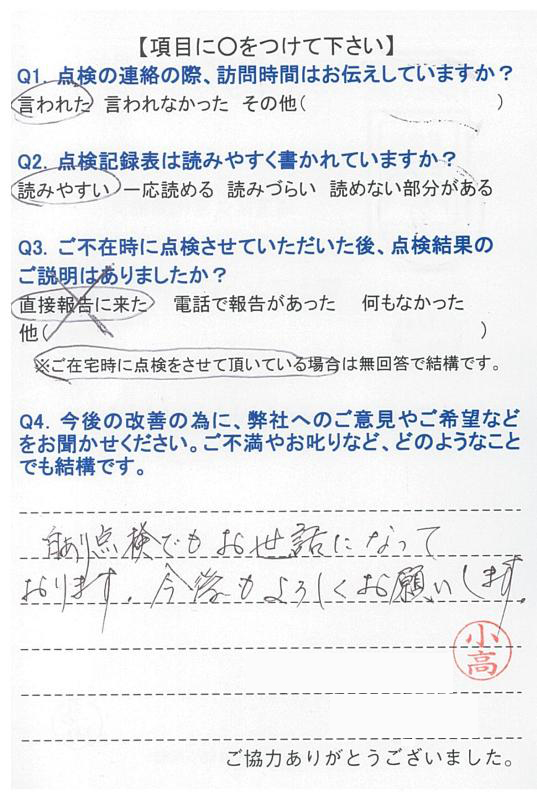 【項目に〇をつけて下さい】
Q1. 点検の連絡の際、訪問時間はお伝えしていますか？
言われた 言われなかった その他（ ）
Q2. 点検記録表は読みやすく書かれていますか？
読みやすい 一応読める 読みづらい 読めない部分がある
Q3. ご不在時に点検させていただいた後、点検結果の
ご説明はありましたか？
直接報告に来た 電話で報告があった 何もなかった
他（ ）
※ご在宅時に点検をさせて頂いている場合は無回答で結構です。
Q4. 今後の改善の為に、弊社へのご意見やご希望など
をお聞かせください。ご不満やお叱りなど、どのようなこと
でも結構です。
点検でもお世話になって
おります。今後もよろしくお願いします。
小高
ご協力ありがとうございました。